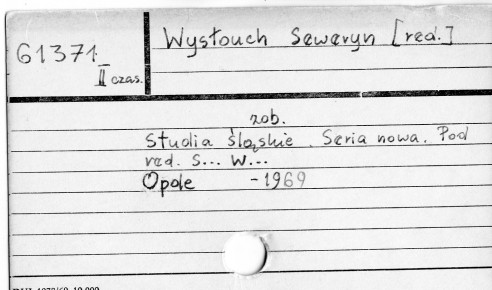 61371
II czas.
Wysłouch Seweryn [red.]
zob.
Studia śląskie. Seria nowa. Pod
red. S... W...
Opole -1969